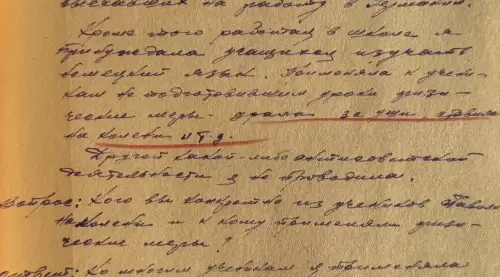 выезжавших на работу в Германию.
Кроме того работая в школе я
принуждала учащихся изучать
немецкий язык. Применяла к учени-
кам не подготовившим уроки физи-
ческие меры - драла за уши ставила
на колени и т.д.
Другой какой-либо антисоветской
деятельности я не проводила.
Вопрос: Кого вы конкретно из учеников ставили
на колени и к кому применяли физи-
ческие меры?
Ответ: Ко многим ученикам я применяла